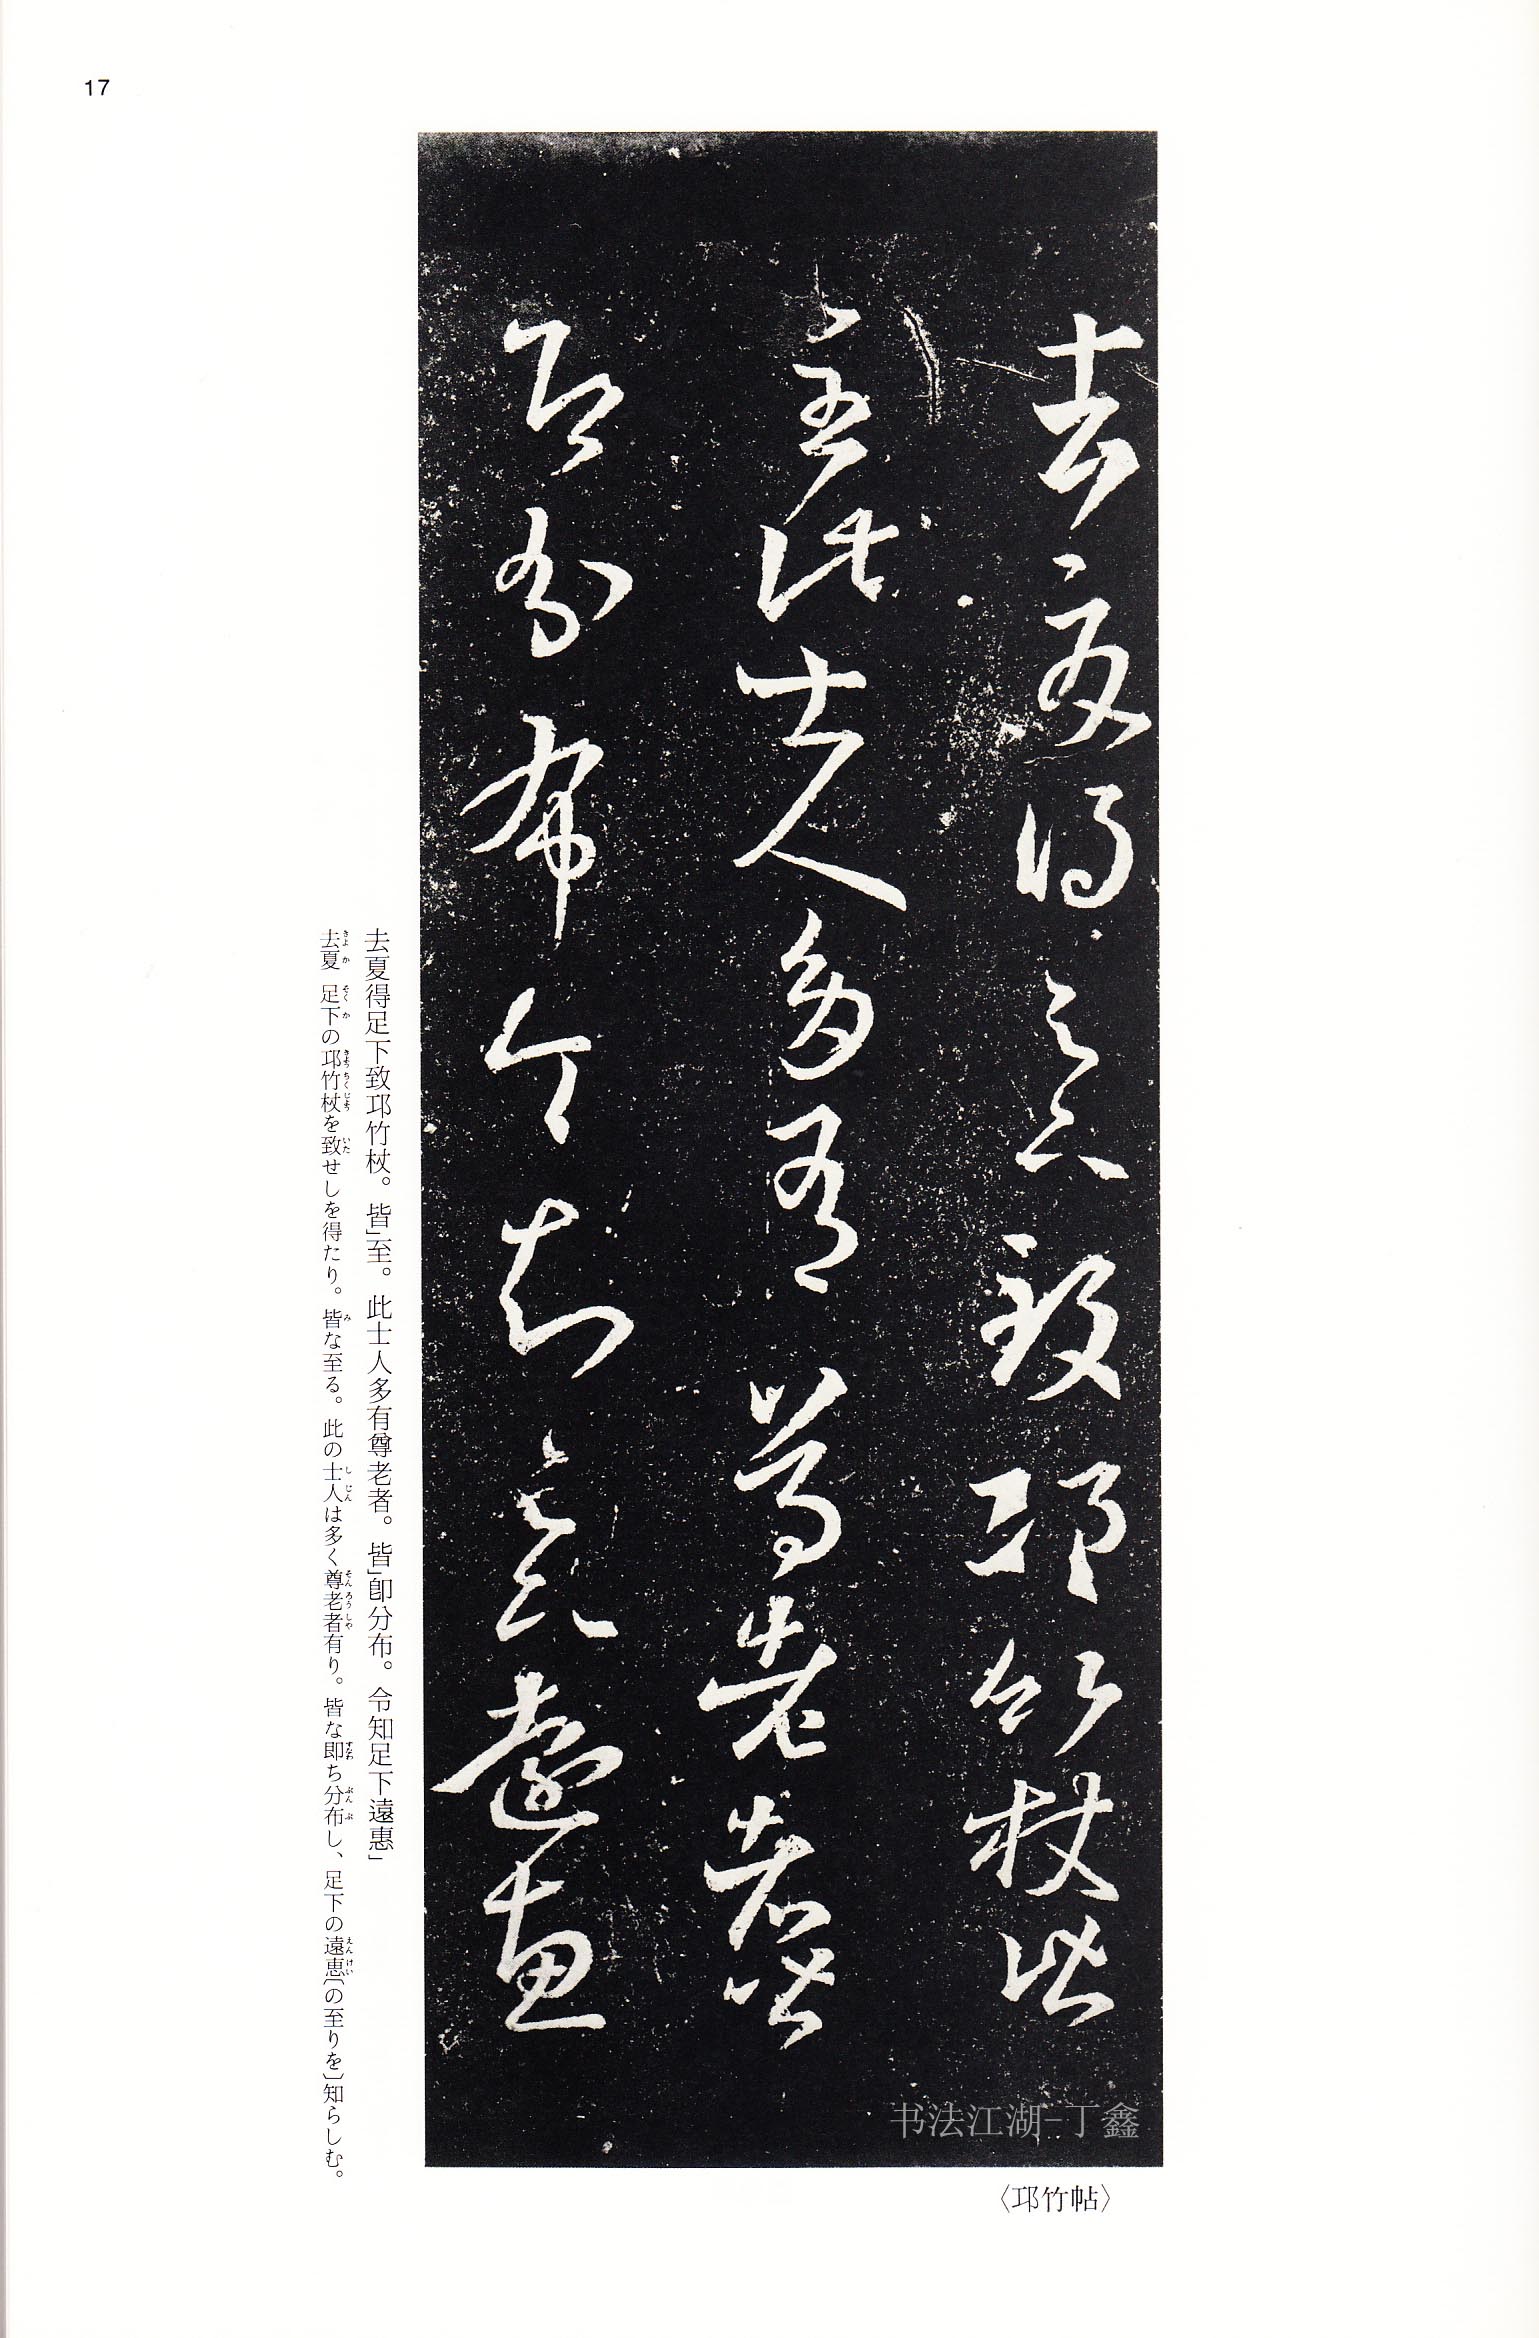 17
去夏得足下致邛竹杖皆
至此士人多有尊老者皆
即分布令知足下遠惠
书法江湖-丁鑫
〈邛竹帖〉
去夏得足下致邛竹杖。皆」至。此士人多有尊老者。皆」卽分布。令知足下遠惠」
去夏 足下の邛竹杖を致せしを得たり。皆な至る。此の士人は多く尊老者有り。皆な即ち分布し、足下の遠恵〔の至りを〕知らしむ。